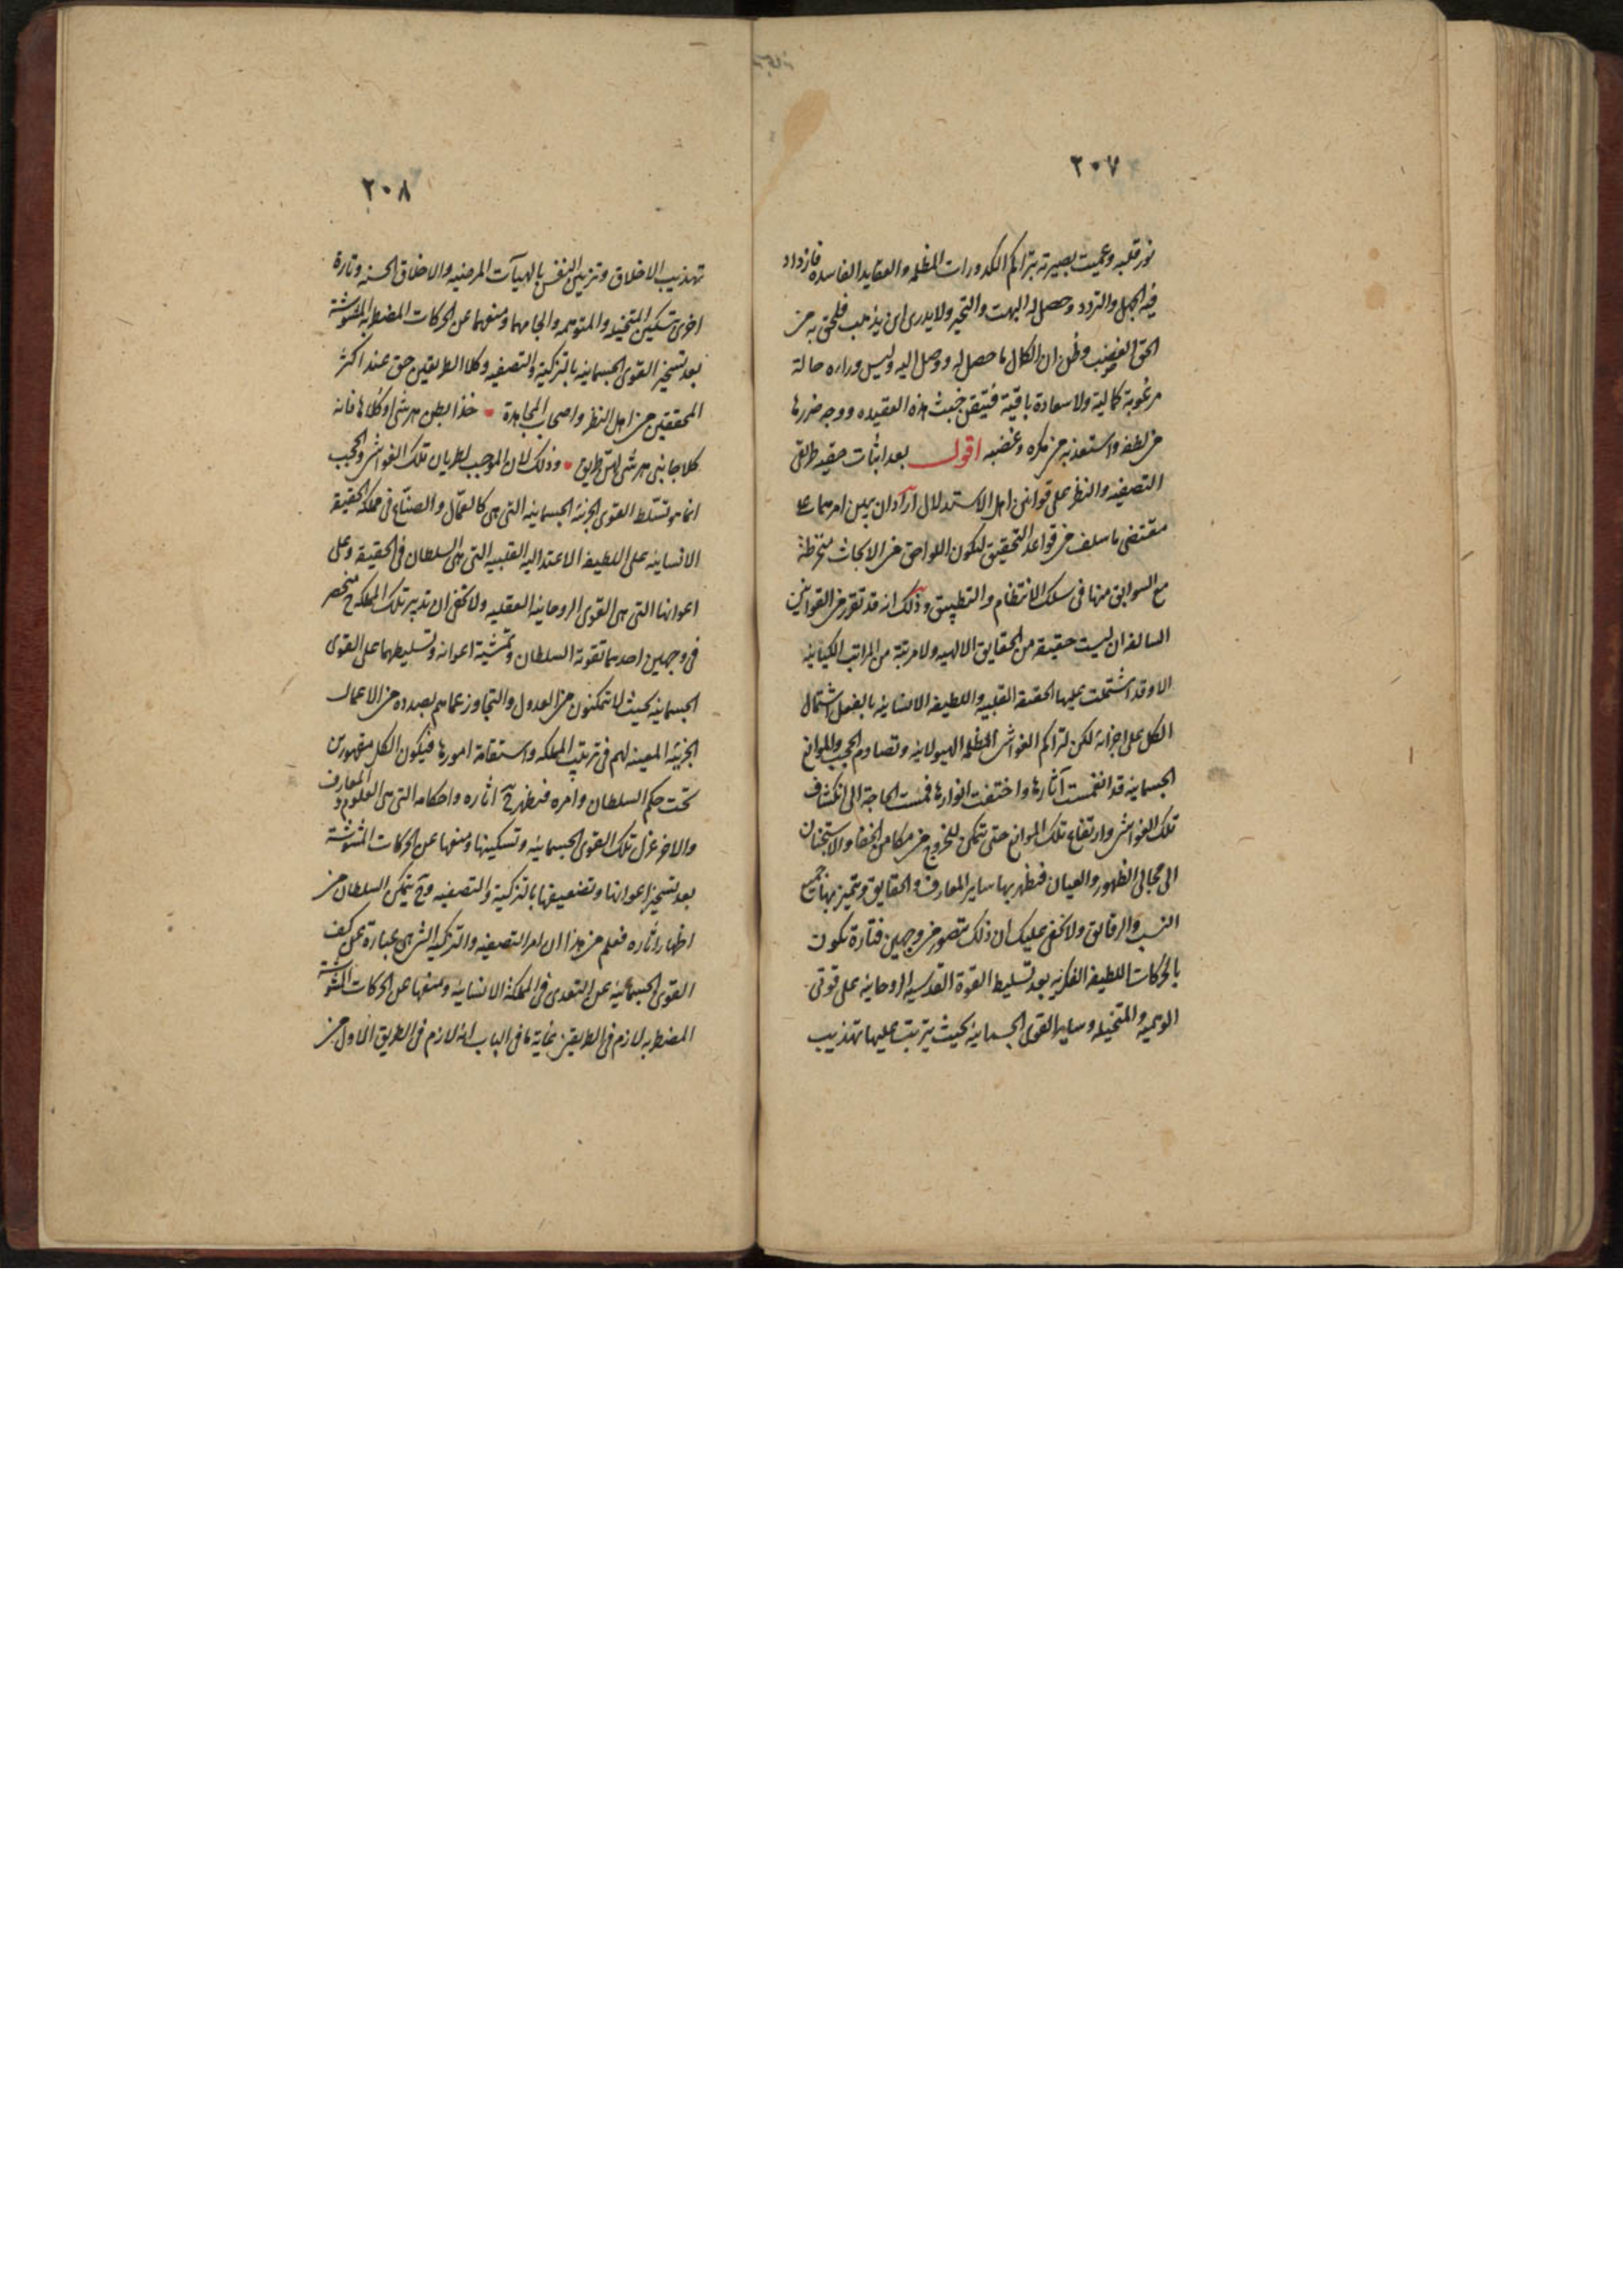 ٢٠٧
نور قلبه وعميت بصيرته بتراكم الكدورات المظلمه والعقايد الفاسده فازداد
فيه الجهل والتردد وحصل له البهت والتحير ولا يدرى اين يذهب فلحق به من
الحق الغضب وظن ان الكمال ما حصل له ووصل اليه وليس وراءه حالة
مرغوبة كمالية ولا سعادة باقية فتيقن خبث هذه العقيده ووجه ضررها
من لطفه واستعذ به من مكره وغضبه اقول بعد اثبات حقيه طريق
التصفيه والنظر على قوانين اهل الاستدلال اراد ان يبين امرهما على
مقتضى ما سلف من قواعد التحقيق لتكون اللواحق من الابحاث منخرطة
مع السوابق منها فى سلك الانتظام والتطبيق وذلك انه قد تقرر من القوانين
السالفه ان ليست حقيقة من الحقايق الالهيه ولا مرتبة من المراتب الكيانيه
الا وقد اشتملت عليها الحقيقه القلبيه واللطيفه الانسانيه بالفعل اشتمال
الكل على اجزائه لكن لتراكم الغواشى المظلمه الهيولانيه وتصادم الحجب والموانع
الجسمانيه قد انغمست آثارها واختفت انوارها فمست الحاجة الى انكشاف
تلك الغواشى وارتفاع تلك الموانع حتى تتمكن للخروج من مكامن الخفاء والاستجنان
الى مجالى الظهور والعيان فتظهر بها ساير المعارف والحقايق ويتميز بها جميع
النسب والرقائق ولا يخفى عليك ان ذلك متصور من وجهين فتارة تكون
بالحركات اللطيفه الفكريه بعد تسليط القوة القدسيه الروحانيه على قوتى
الوهميه والمتخيله وساير القوى الجسمانيه بحيث يترتب عليها تهذيب
٢٠٨
تهذيب الاخلاق وتزيين النفس بالهيآت المرضيه والاخلاق الحسنه وتارة
اخرى بتسكين المتخيله والمتوهمه والجامهما ومنعهما عن الحركات المضطربه المشوشة
بعد تسخير القوى الجسمانيه بالتزكية والتصفيه وكلا الطريقين حق عند اكثر
المحققين من اهل النظر واصحاب المجاهدة خذا بطن هرشى او كلاها فانه
كلا جانبى هرشى لهن طريق وذلك لان الموجب لطريان تلك الغواشى والحجب
انما هو تسلط القوى الجزئيه الجسمانيه التى هى كالعمّال والصنّاع فى مملكة الحقيقة
الانسانيه على اللطيفه الاعتداليه القلبيه التى هى السلطان فى الحقيقة وعلى
اعوانها التى هى القوى الروحانيه العقليه ولا يخفى ان تدبير تلك المملكة منحصر
فى وجهين احدهما تقوية السلطان وتمشية اعوانه وتسليطهما على القوى
الجسمانيه بحيث لا تتمكنون من العدول والتجاوز عما هم بصدده من الاعمال
الجزئية المعينه لهم فى ترتيب المملكه واستقامة امورها فيكون الكل مقهورين
تحت حكم السلطان وامره فتظهر ح آثاره واحكامه التى هى العلوم والمعارف
والاخر عزل تلك القوى الجسمانيه وتسكينها ومنعها عن الحركات المشوشة
بعد تسخير اعوانها وتضعيفها بالتزكية والتصفيه وح يتمكن السلطان من
اظهار آثاره فعلم من هذا ان امر التصفيه والتزكيه التى هى عبارة عن كف
القوى الجسمانية عن التعدى فى المملكة الانسانيه ومنعها عن الحركات المشوشة
المضطربه لازم فى الطريقين غاية ما فى الباب انه لازم فى الطريق الاول من